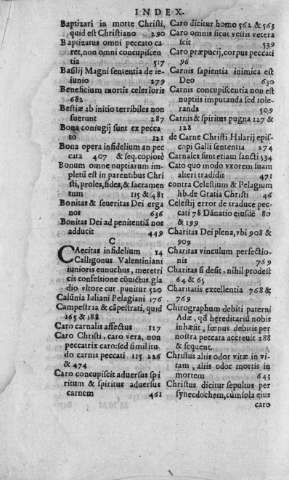 INDEX.
Baptizari in morte Christi,
quid est Christiano 290
Baptizatus omni peccato ca
ret, non omni concupiscentia
tia 517
Basilij Magni sententia de ie
iunio 279
Beneficium mortis celerioris
682
Bestiæ ab initio terribiles non
fuerunt 287
Bona coniugij sunt ex pecca
to 21
Bona opera infidelium an pec
cata 407 & seq. copiose
Bonum omne nuptiarum im-
pletū est in parentibus Chri
sti, proles, fides, & sacramen
tum 115 & 481
Bonitas & seueritas Dei erga
nos 636
Bonitas Dei ad penitentiā nos
adducit 449
C
CAecitas infidelium 14
Calligonus Valentiniani
iunioris eunuchus, meretri
cis confessione cōuictus gla
dio vltore cur punitus 520
Calūnia Iuliani Pelagiani 176
Campestria & capistrati, quid
165 & 188
Caro carnalis affectus 117
Caro Christi, caro vera, non
peccatrix caro: sed similitu.
do carnis peccati 115 226
& 474
Caro concupiscit aduersus spi
ritum & spiritus aduersus
carnem 461
Caro dicitur homo 562 & 563
Caro omnis sicut vestis vetera
scit 539
Caro præpucij, corpus peccati
96
Carnis sapientia inimica est
Deo 610
Carnis concupiscentia non est
nuptijs imputanda sed tole-
randa 509
Carnis & spiritus pugna 127 &
128
de Carne Christi Hilarij epi-
scopi Galli sententia 274
Carnales sententiam sancti 534
Cato quo modo vxorem suam
alteri tradidit 471
contra Celestium & Pelagium
hb. de Gratia Christi 46
Celestij error de traduce pec-
cati 78 Dānatio eiusdē 80
& 199
Charitas Dei plena, vbi 908 &
909
Charitas vinculum perfectio-
nis 769
Charitas si desit, nihil prodest
64 & 65
Charitatis excellentia 768 &
769
Chirographum debiti paterni
Adæ, qd hereditariū nobis
inhæsit, fœnus debitis per
nostra peccata accreuit 288
& sequent.
Christus aliis odor vitæ in vi-
tam, aliis odor mortis in
mortem 645
Christus dicitur sepultus per
synecdochem, cum sola eius
caro